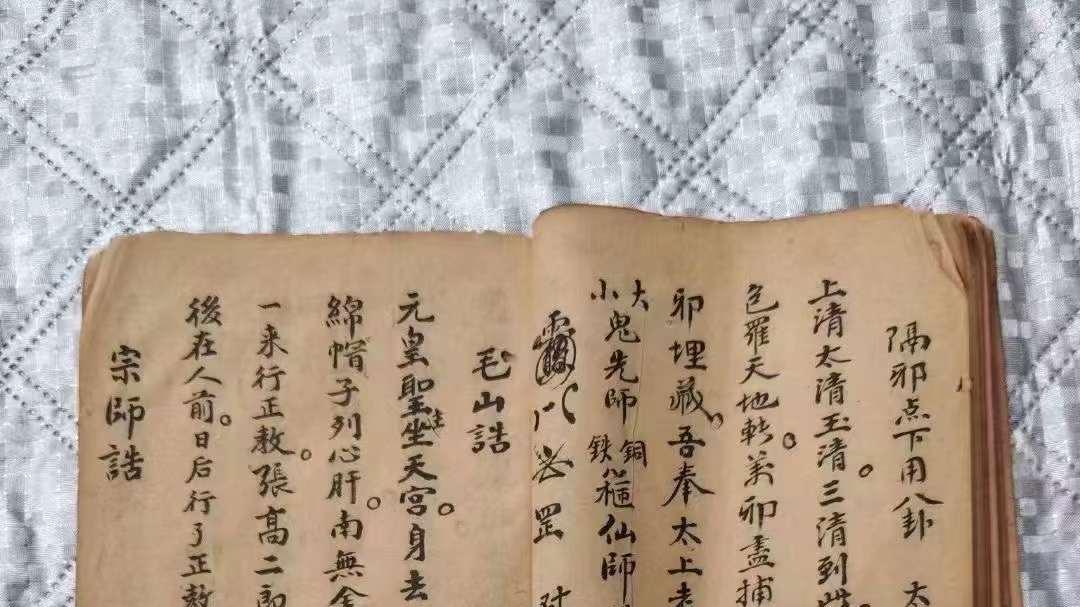 隔邪点下用八卦 太
上清太清玉清。三清到此
色罗天地转。万卯尽捕
卯埋藏。吾奉太上老
大小鬼先師 銅鉄 仙師
罡
毛山誥
元皇聖主坐天宮。身去
綿帽子列心肝。南無金
一来行正教。張高二郎
後在人前。日后行了正教
宗師誥